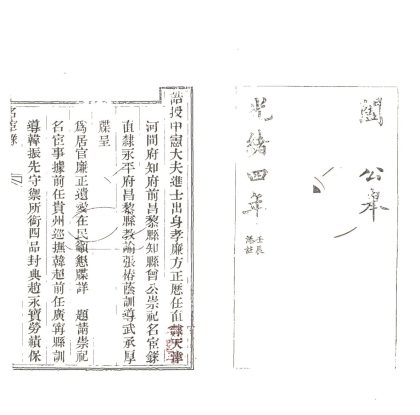 公
光緒四年
誥授中憲大夫進士出身孝廉方正歷任直隸天津
河間府知府前昌黎縣知縣曾公崇祀名宦錄
直隸永平府昌黎縣教諭張椿蔭訓導武承厚
牒呈
為居官廉正遺愛在民籲懇牒詳　題請崇祀
名宦事據前任貴州巡撫韓超前任廣甯縣訓
導韓振先守禦所銜四品封典趙永寶勞績保
名宦錄